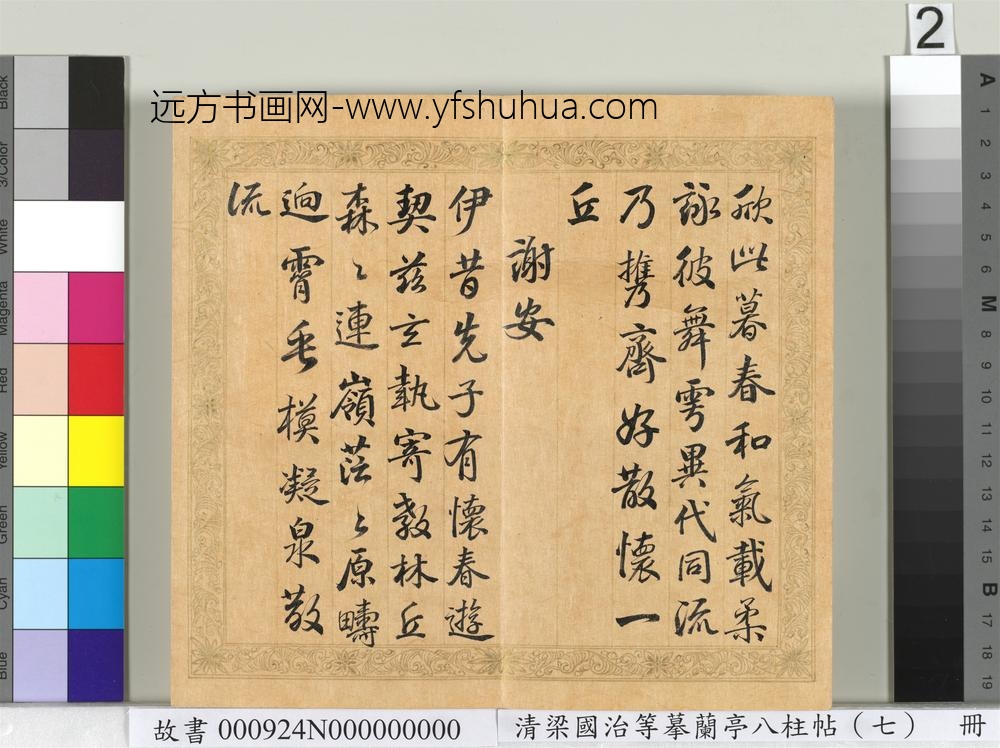 2
远方书画网-www.yfshuhua.com
欣此暮春和氣載柔
詠彼舞雩異代同流
乃攜齊好散懷一
丘
謝安
伊昔先子有懷春遊
契茲言執寄敖林丘
森〻連嶺茫〻原疇
逈霄垂模凝泉散
流
Black
3/Color
White
Magenta
Red
Yellow
Green
Cyan
Blue
A
1
2
3
4
5
6
M
8
9
10
11
12
13
14
15
B
17
18
19
故書 000924N000000000
清梁國治等摹蘭亭八柱帖（七） 冊